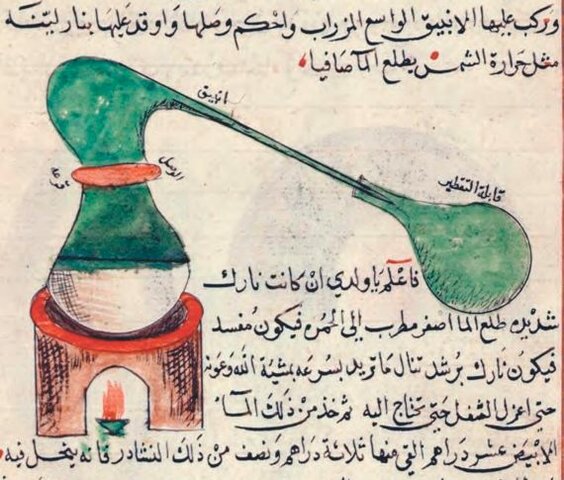 وركب عليها الانبيق الواسع المزراب واحكم وصلها واوقد عليها بنار لينه
مثل حرارة الشمس يطلع المآ صافيا
انبيق
الوصل
قابلة التقطير
فاعلم يا ولدي ان كانت نارك
شديده طلع الما اصفر مطرب الى الحمره فيكون مفسد
فيكون نارك برشد تنال ما تريد بسرعه بمشية الله وعونه
حتى اعزل الثفل حتى تحتاج اليه ثم خذ من ذلك المآ
الابيض عشر دراهم القي منها ثلاثة دراهم ونصف من ذلك النشادر فانه ينحل فيه